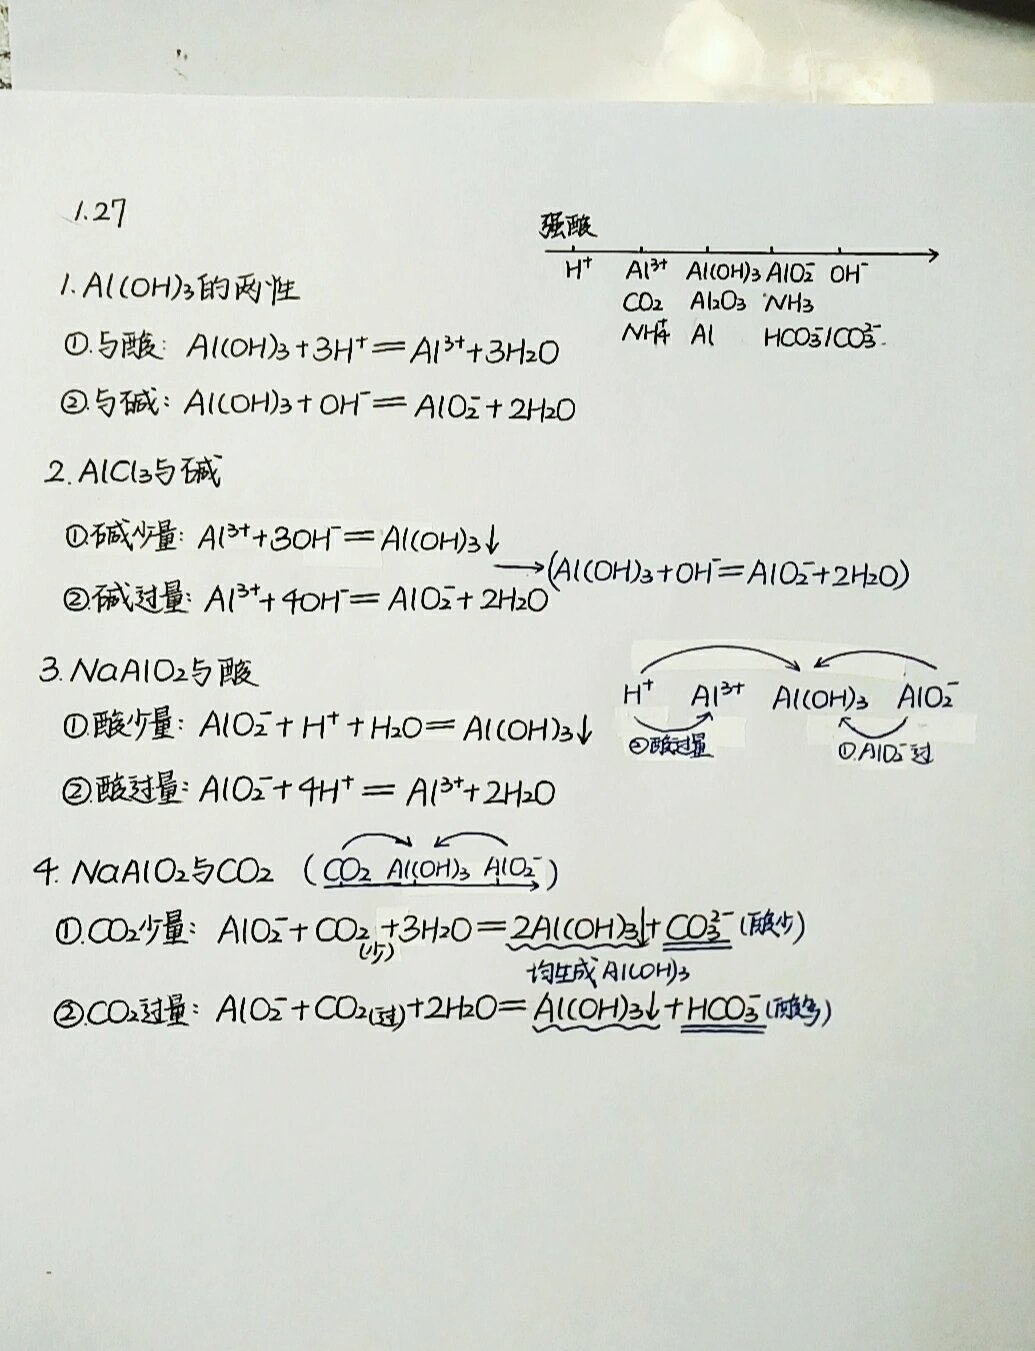 1.27
强酸
H⁺ Al³⁺ Al(OH)₃ AlO₂⁻ OH⁻
CO₂ Al₂O₃ NH₃
NH₄⁺ Al HCO₃⁻/CO₃²⁻.
1. Al(OH)₃的两性
①.与酸: Al(OH)₃+3H⁺=Al³⁺+3H₂O
②.与碱: Al(OH)₃+OH⁻=AlO₂⁻+2H₂O
2. AlCl₃与碱
①.碱少量: Al³⁺+3OH⁻=Al(OH)₃↓
→(Al(OH)₃+OH⁻=AlO₂⁻+2H₂O)
②.碱过量: Al³⁺+4OH⁻=AlO₂⁻+2H₂O
3. NaAlO₂与酸
H⁺ Al³⁺ Al(OH)₃ AlO₂⁻
②酸过量 ①.AlO₂⁻过
①酸少量: AlO₂⁻+H⁺+H₂O=Al(OH)₃↓
②.酸过量: AlO₂⁻+4H⁺=Al³⁺+2H₂O
4. NaAlO₂与CO₂ (CO₂ Al(OH)₃ AlO₂⁻)
①.CO₂少量: AlO₂⁻+CO₂(少)+3H₂O=2Al(OH)₃↓+CO₃²⁻(酸少)
均生成Al(OH)₃
②.CO₂过量: AlO₂⁻+CO₂(过)+2H₂O=Al(OH)₃↓+HCO₃⁻(酸多)